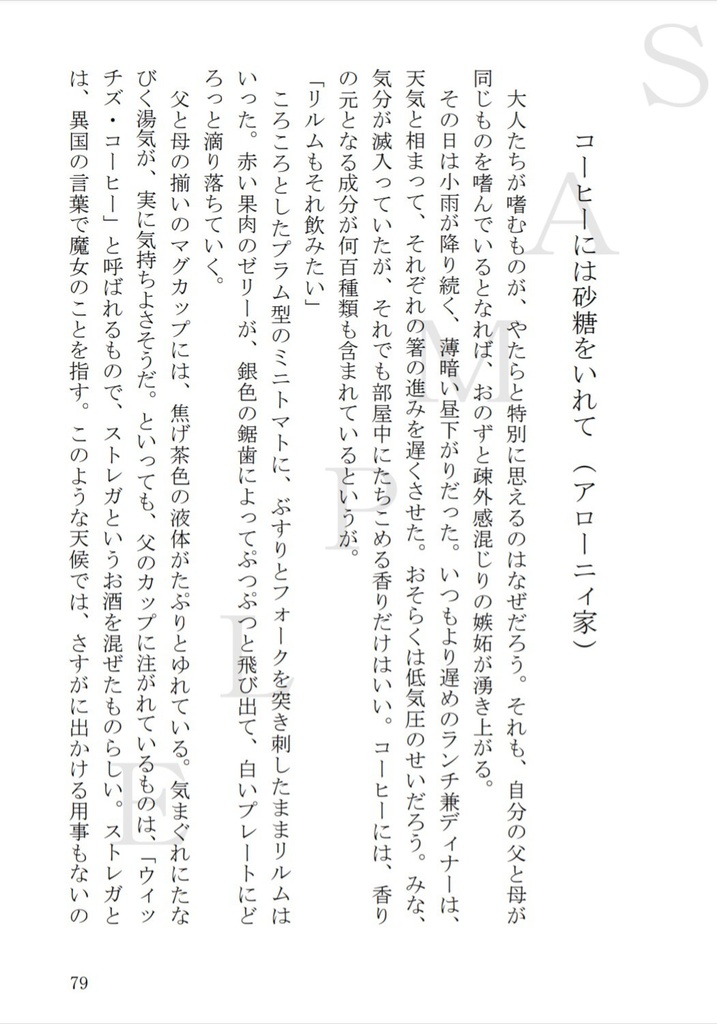 コーヒーには砂糖をいれて （アローニィ家）
大人たちが嗜むものが、やたらと特別に思えるのはなぜだろう。それも、自分の父と母が
同じものを嗜んでいるとなれば、おのずと疎外感混じりの嫉妬が湧き上がる。
その日は小雨が降り続く、薄暗い昼下がりだった。いつもより遅めのランチ兼ディナーは、
天気と相まって、それぞれの箸の進みを遅くさせた。おそらくは低気圧のせいだろう。みな、
気分が滅入っていたが、それでも部屋中にたちこめる香りだけはいい。コーヒーには、香り
の元となる成分が何百種類も含まれているというが。
「リルムもそれ飲みたい」
ころころとしたプラム型のミニトマトに、ぶすりとフォークを突き刺したままリルムは
いった。赤い果肉のゼリーが、銀色の鋸歯によってぷつぷつと飛び出て、白いプレートにど
ろっと滴り落ちていく。
父と母の揃いのマグカップには、焦げ茶色の液体がたぷりとゆれている。気まぐれにたな
びく湯気が、実に気持ちよさそうだ。といっても、父のカップに注がれているものは、「ウィッ
チズ・コーヒー」と呼ばれるもので、ストレガというお酒を混ぜたものらしい。ストレガと
は、異国の言葉で魔女のことを指す。このような天候では、さすがに出かける用事もないの
79
SAMPLE